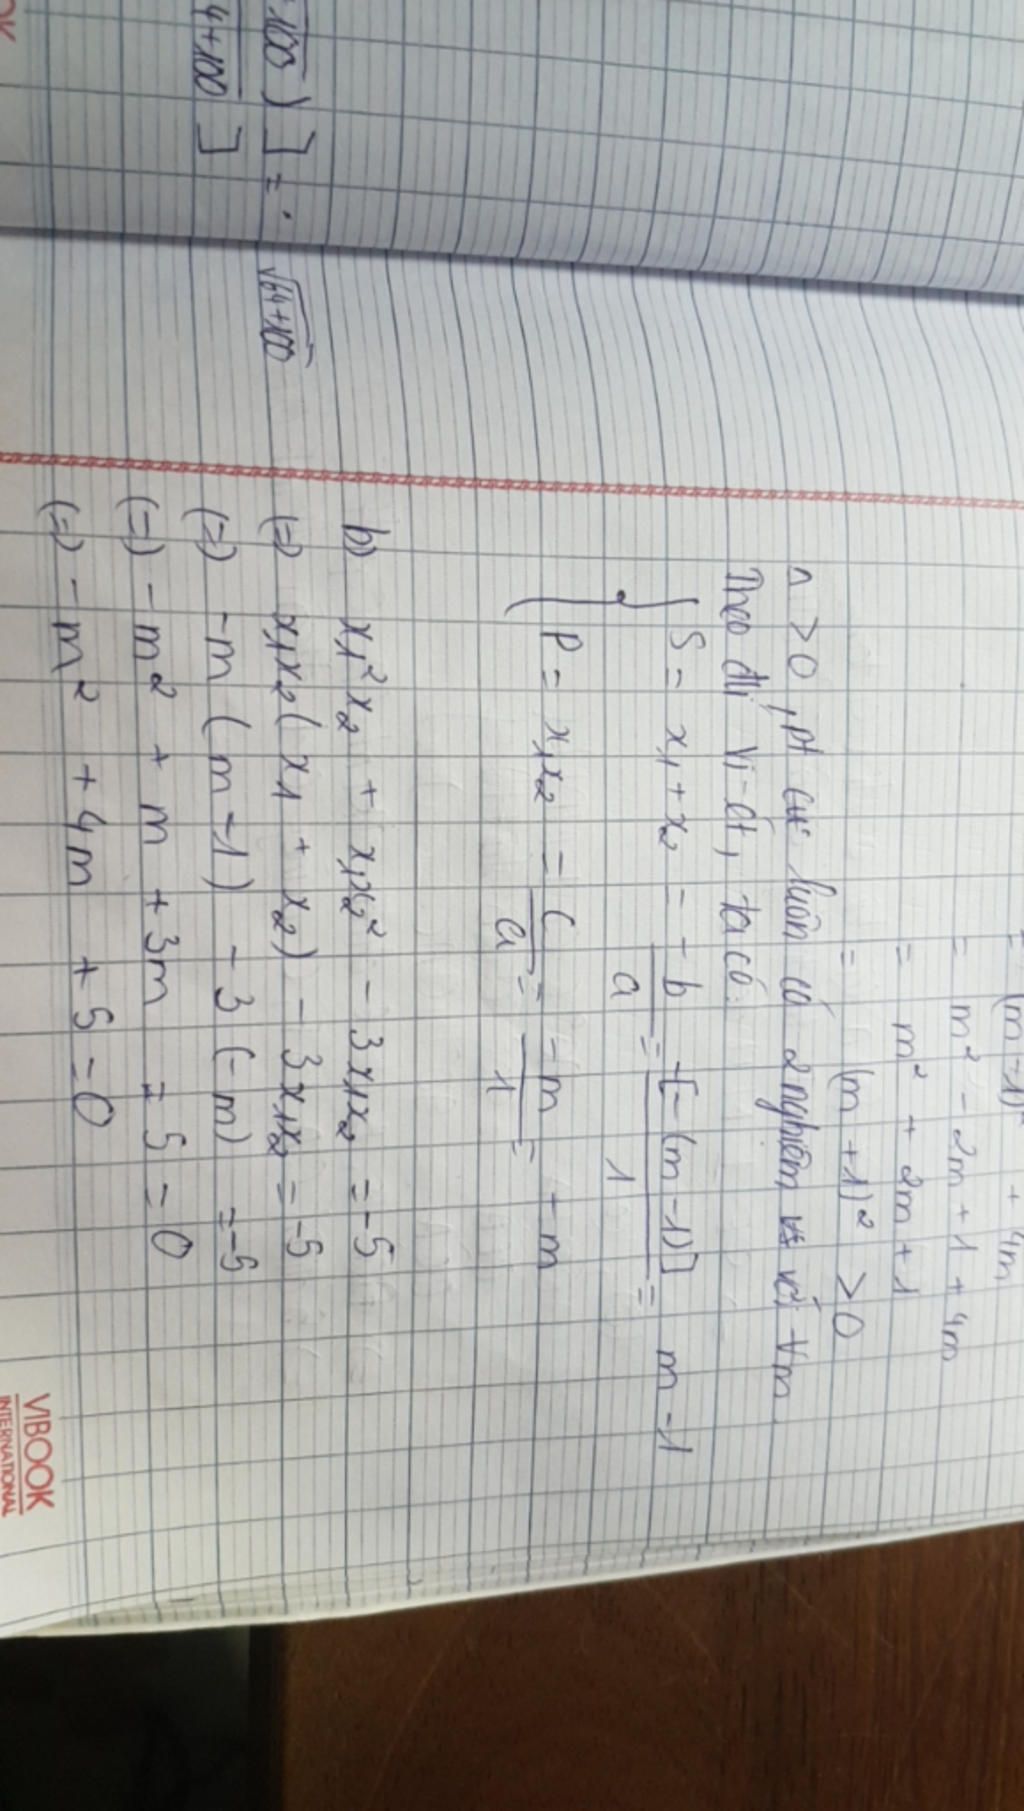 = (m-1)² + 4m
= m² - 2m + 1 + 4m
= m² + 2m + 1
= (m+1)² > 0
Δ > 0, pt luôn có 2 nghiệm với ∀m
Theo đlí Vi-ét, ta có:
S = x₁ + x₂ = -b/a = -[-(m-1)]/1 = m - 1
P = x₁x₂ = c/a = -m/1 = -m
b) x₁²x₂ + x₁x₂² - 3x₁x₂ = -5
(=) x₁x₂(x₁ + x₂) - 3x₁x₂ = -5
(=) -m(m-1) - 3(-m) = -5
(=) -m² + m + 3m = 5 = 0
(=) -m² + 4m + 5 = 0
100)] = .
4+100]
√64+100
VIBOOK
INTERNATIONAL